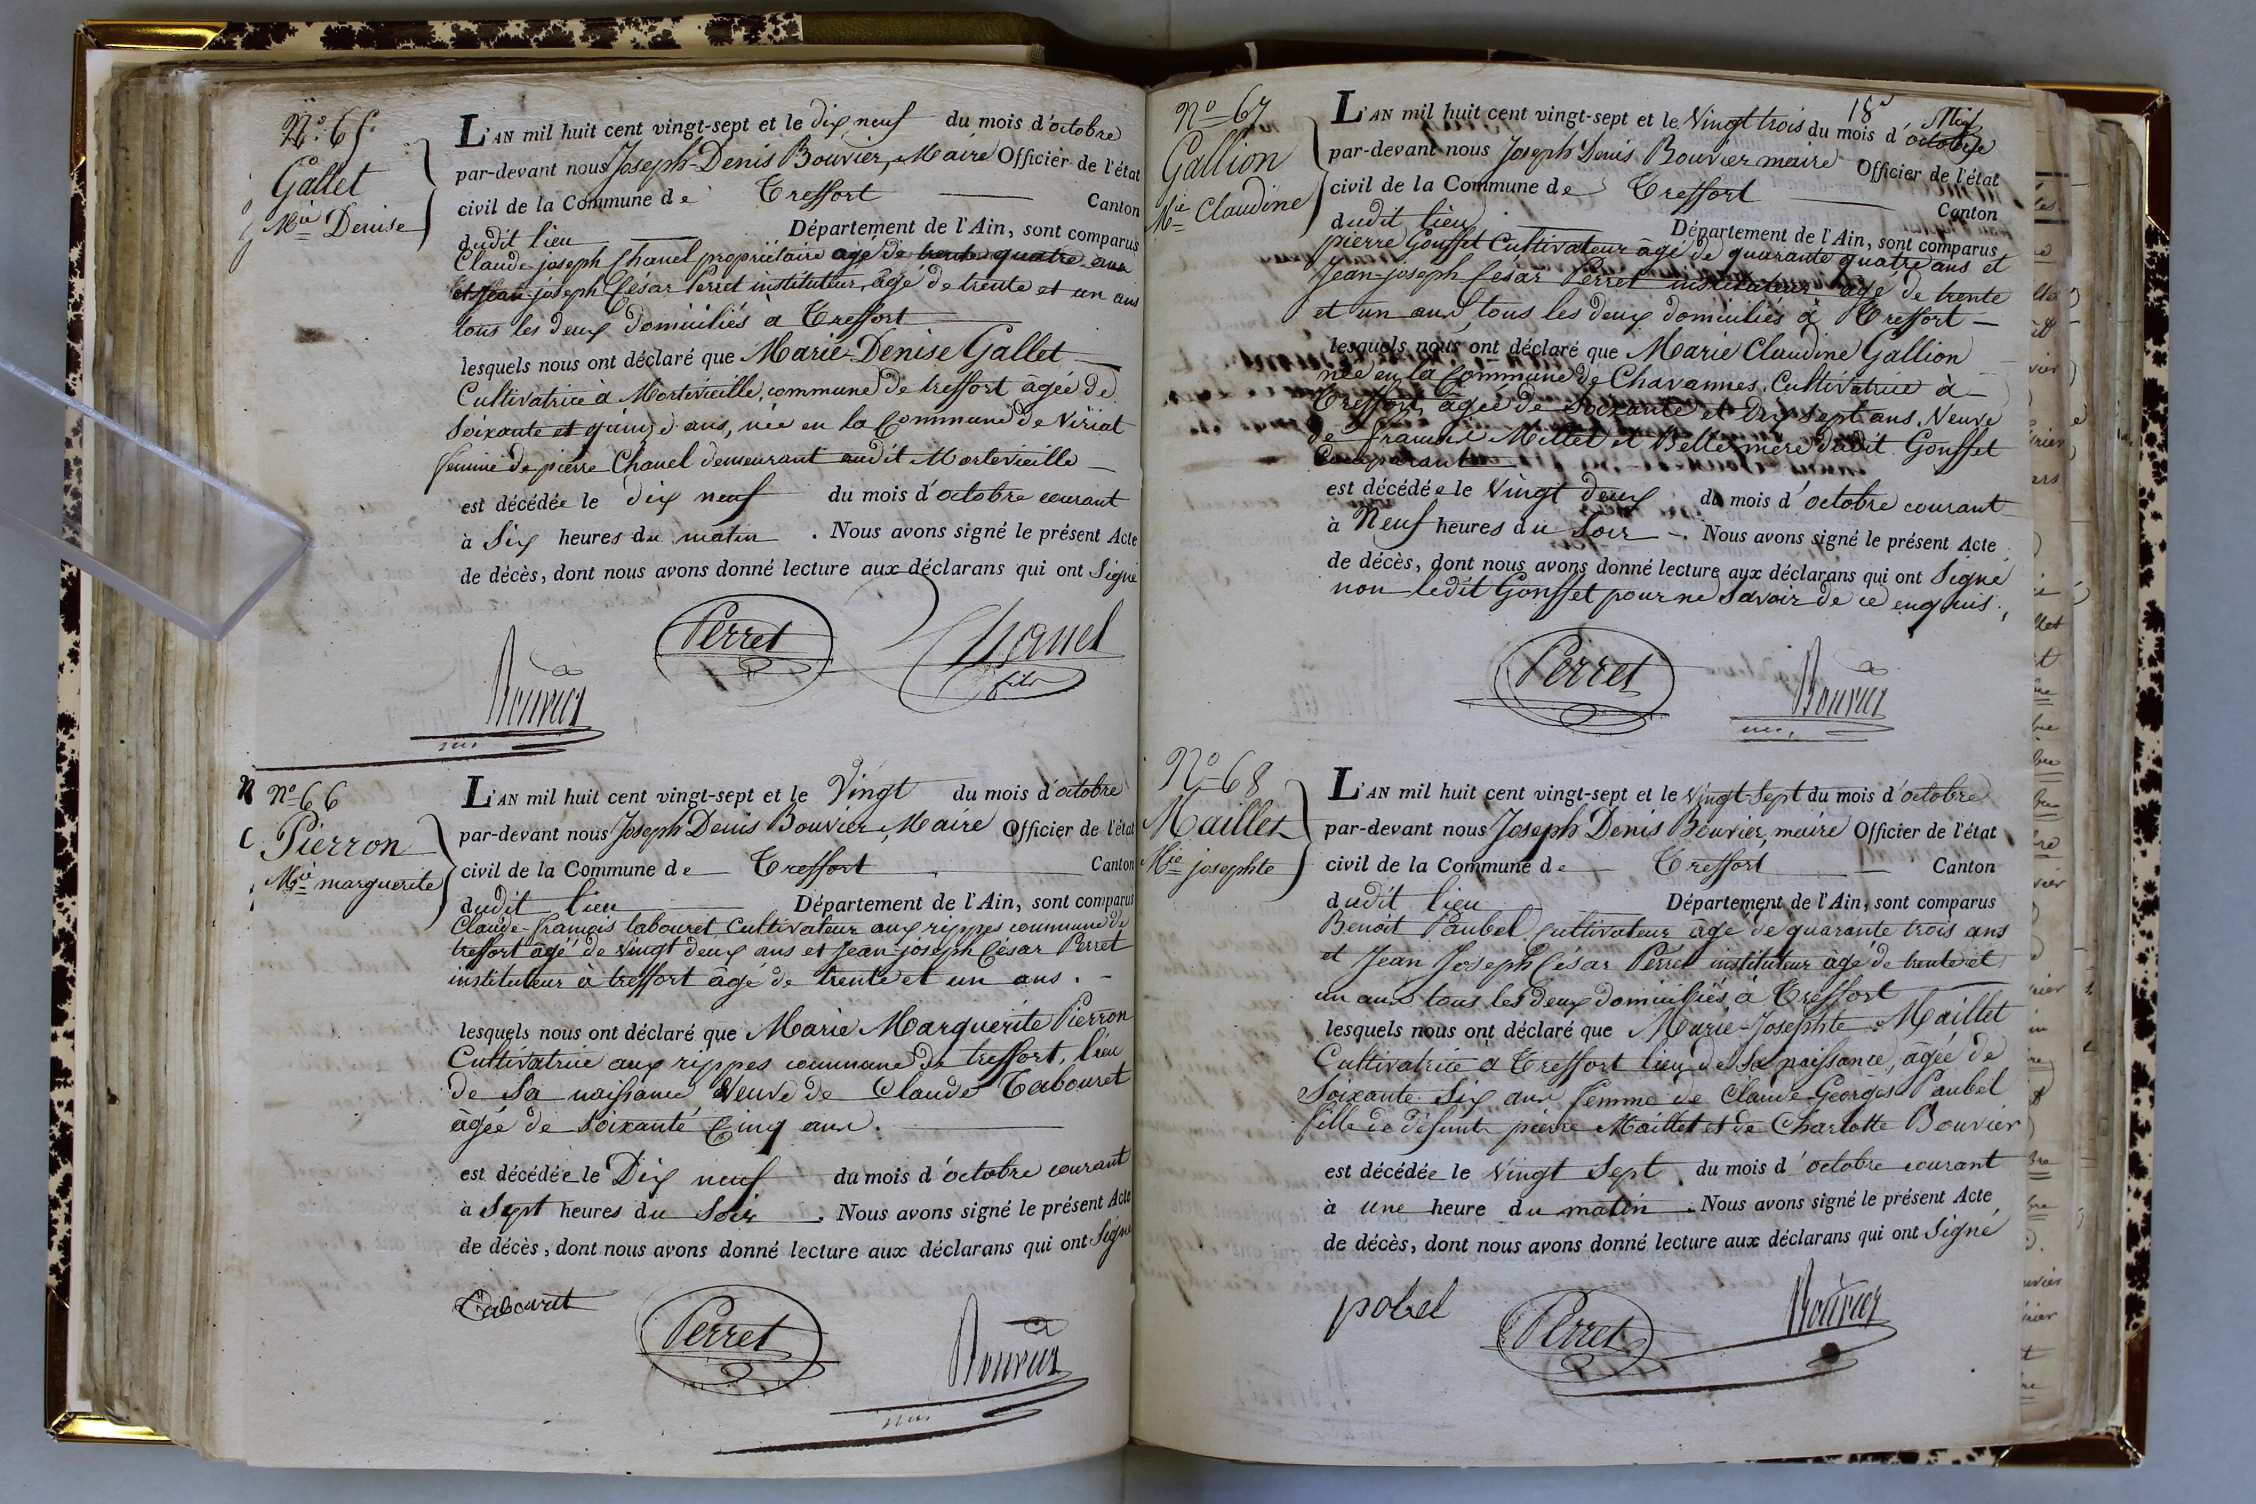 No. 65.
Gallet
Mie Denise
L'AN mil huit cent vingt-sept et le dix neuf du mois d'octobre
par-devant nous Joseph-Denis Bouvier, Maire Officier de l'état
civil de la Commune de Treffort Canton
dudit lieu Département de l'Ain, sont comparus
Claude-joseph Chanel propriétaire agé de trente quatre ans
et Jean-joseph César Perret instituteur, âgé de trente et un ans
tous les deux domiciliés à Treffort
lesquels nous ont déclaré que Marie-Denise Gallet
Cultivatrice à Mortevieille, commune de treffort âgée de
Soixante et quinze ans, née en la Commune de Viriat
femme de pierre Chanel demeurant audit Mortevieille
est décédée le dix neuf du mois d'octobre courant
à Six heures du matin. Nous avons signé le présent Acte
de décès, dont nous avons donné lecture aux déclarans qui ont Signé
Perret
Chanel
fils
Bouvier
No 66
Pierron
Mie marguerite
L'AN mil huit cent vingt-sept et le Vingt du mois d'octobre
par-devant nous Joseph Denis Bouvier, Maire Officier de l'état
civil de la Commune de Treffort Canton
dudit lieu Département de l'Ain, sont comparus
Claude-françois tabouret Cultivateur aux rippes commune de
treffort âgé de vingt deux ans et Jean-joseph César Perret
instituteur à treffort âgé de trente et un ans.
lesquels nous ont déclaré que Marie Marguerite Pierron
Cultivatrice aux rippes commune de treffort, lieu
de Sa naissance Veuve de Claude Tabouret
âgée de Soixante Cinq ans.
est décédée le Dix neuf du mois d'octobre courant
à Sept heures du Soir. Nous avons signé le présent Acte
de décès, dont nous avons donné lecture aux déclarans qui ont Signé
Tabouret
Perret
Bouvier
No 67
Gallion
Mie Claudine
L'AN mil huit cent vingt-sept et le Vingt trois du mois d'octobre
par-devant nous Joseph Denis Bouvier maire Officier de l'état
civil de la Commune de Treffort Canton
dudit lieu Département de l'Ain, sont comparus
pierre Gouffet Cultivateur âgé de quarante quatre ans et
Jean-joseph César Perret instituteur âgé de trente
et un ans, tous les deux domiciliés à Treffort
lesquels nous ont déclaré que Marie Claudine Gallion
née en la Commune de Chavannes, Cultivatrice à
Treffort, âgée de Soixante et Dix sept ans, Veuve
de francois Millet et Belle-mère dudit Gouffet
Comparant
est décédée le Vingt deux du mois d'octobre courant
à Neuf heures du Soir. Nous avons signé le présent Acte
de décès, dont nous avons donné lecture aux déclarans qui ont Signé
non ledit Gouffet pour ne Savoir de ce enquis.
Perret
Bouvier
No 68
Maillet
Mie josephte
L'AN mil huit cent vingt-sept et le Vingt-Sept du mois d'octobre
par-devant nous Joseph Denis Bouvier, maire Officier de l'état
civil de la Commune de Treffort Canton
dudit lieu Département de l'Ain, sont comparus
Benoit Paubel Cultivateur âgé de quarante trois ans
et Jean Joseph César Perret instituteur âgé de trente et
un ans tous les deux domiciliés à Treffort
lesquels nous ont déclaré que Marie-Josephte Maillet
Cultivatrice à Treffort lieu de Sa naissance, âgée de
Soixante Six ans femme de Claude-Georges Paubel
fille de défunts pierre Maillet et de Charlotte Bouvier
est décédée le Vingt Sept du mois d'octobre courant
à une heure du matin. Nous avons signé le présent Acte
de décès, dont nous avons donné lecture aux déclarans qui ont Signé
pobel
Perret
Bouvier